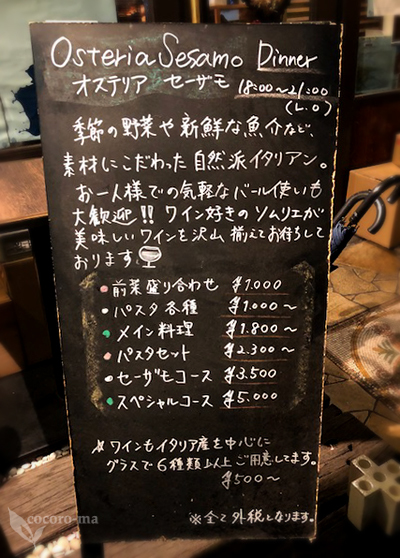 Osteria Sesamo Dinner
オステリア セーサモ 18:00〜21:00
(L.O)
季節の野菜や新鮮な魚介など、
素材にこだわった自然派イタリアン。
お一人様での気軽なバール使いも
大歓迎!! ワイン好きのソムリエが
美味しいワインを沢山揃えてお待ちして
おります
・前菜盛り合わせ ¥1.000
・パスタ各種 ¥1.000〜
・メイン料理 ¥1.800〜
・パスタセット ¥2.300〜
・セーザモコース ¥3.500
・スペシャルコース ¥5.000
☆ワインもイタリア産を中心に
グラスで6種類以上ご用意してます。
¥500〜
※全て外税となります。
cocoro-ma